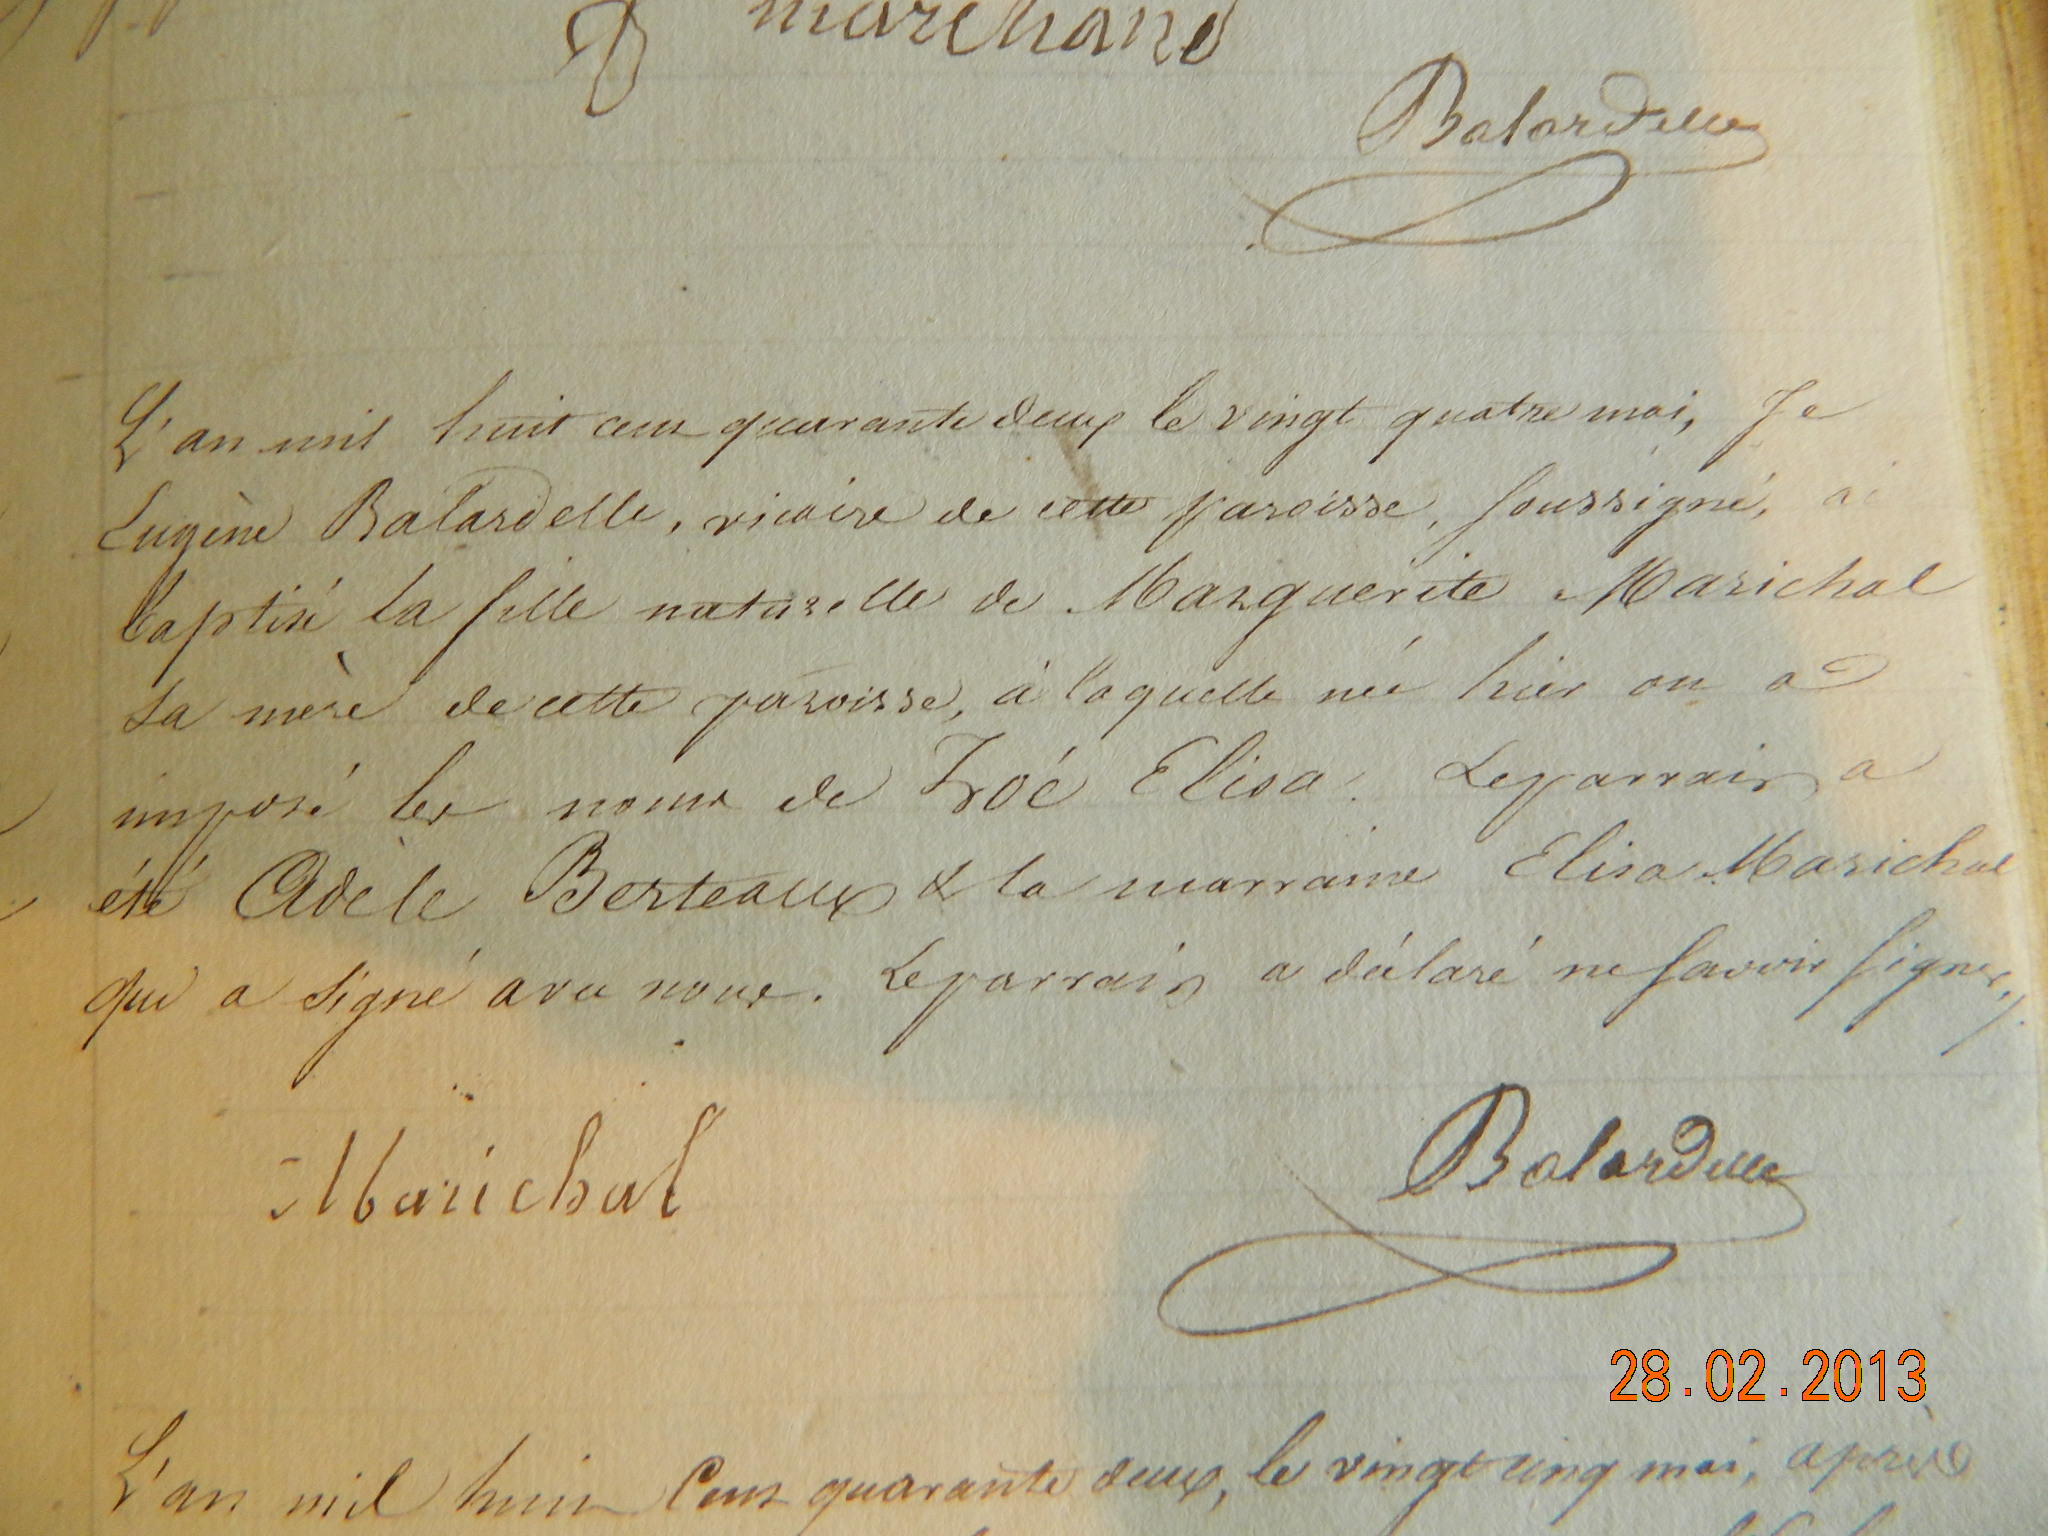 marchand
Balardelle
L'an mil huit cent quarante deux le vingt quatre mai, Je
Eugène Balardelle, vicaire de cette paroisse, soussigné, ai
baptisé la fille naturelle de Marguerite Marichal
sa mère de cette paroisse, à laquelle née hier on a
imposé les noms de Zoé Elisa. Le parrain a
été Adèle Berteaux & la marraine Elisa Marichal
qui a signé avec nous. Le parrain a déclaré ne savoir signer.
Marichal
Balardelle
28.02.2013
L'an mil huit Cent quarante deux, le vingt cinq mai, après